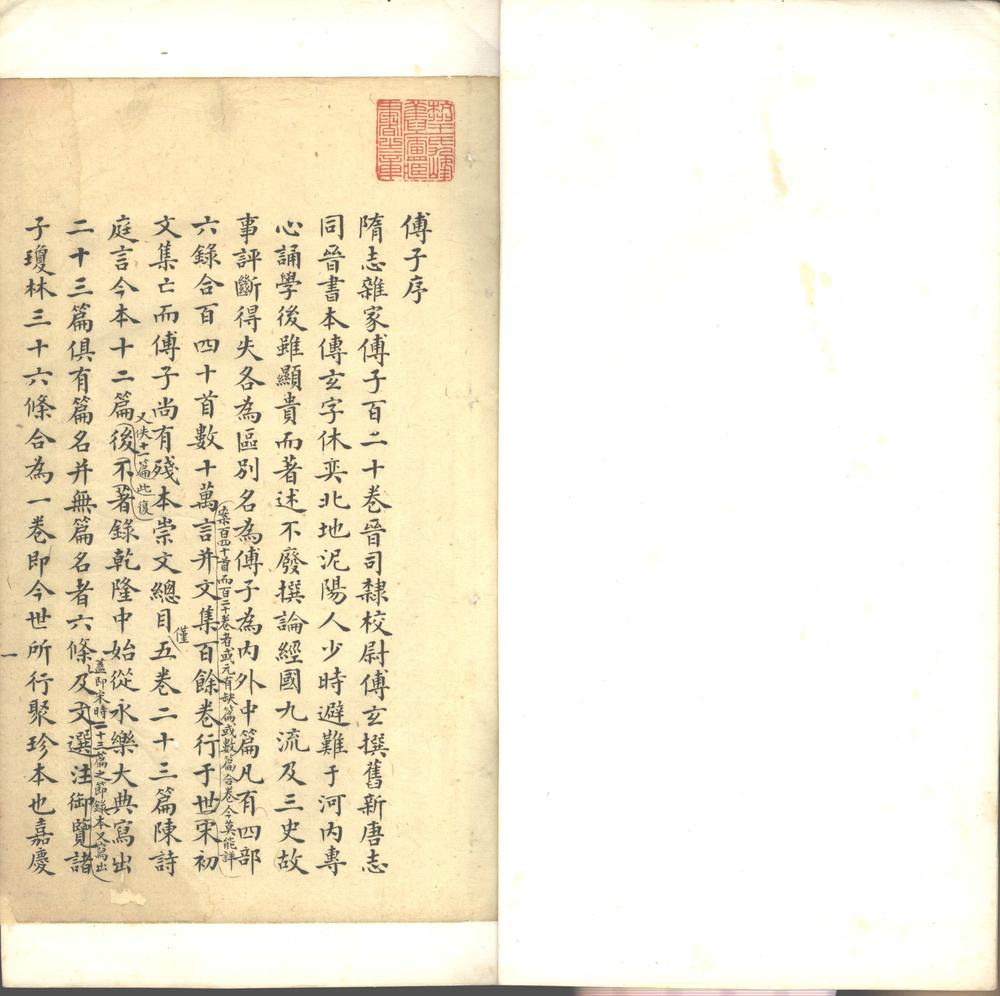 傅子序
隋志雜家傅子百二十卷晉司隸校尉傅玄撰舊新唐志
同晉書本傳玄字休奕北地泥陽人少時避難于河内專
心誦學後雖顯貴而著述不廢撰論經國九流及三史故
事評斷得失各為區別名為傅子為内外中篇凡有四部
案百四十首而百二十卷者或元有缺篇或數篇合卷今莫能詳
六錄合百四十首數十萬言并文集百餘卷行于世宋初
僅
文集亡而傅子尚有殘本崇文總目五卷二十三篇陳詩
又佚十一篇此復
庭言今本十二篇後不著錄乾隆中始從永樂大典寫出
蓋即宋時二十三篇之節錄本又寫出
二十三篇俱有篇名并無篇名者六條及文選注御覽諸
子瓊林三十六條合為一卷即今世所行聚珍本也嘉慶
一